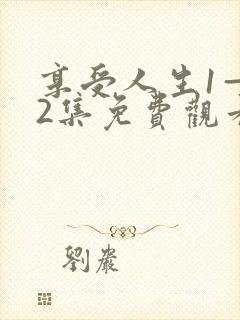 享受人生1一
2集免費觀看
劉嚴